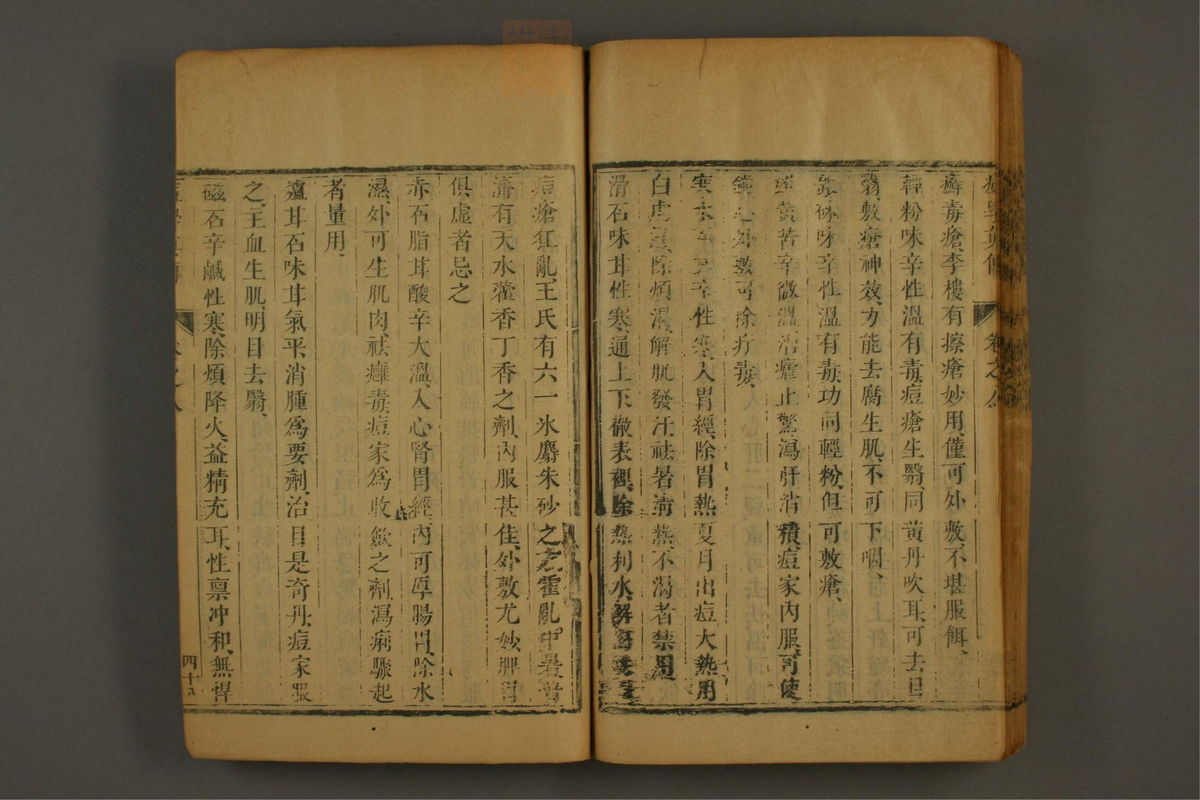 卷之八
癬毒瘡、李樓有擦瘡妙用、僅可外敷、不堪服餌、
輕粉味辛性溫有毒、痘瘡生翳、同黃丹吹耳、可去目
翳、敷瘡神效、方能去腐生肌、不可下咽、
味辛性溫有毒、功同輕粉、但可敷瘡、
黃苦辛微溫、治瘧止驚、瀉肝消積、痘家內服、可使
外敷、可除疔毒、
寒水石 辛性寒、入胃經、除胃熱、夏月出痘大熱用
白虎 除煩渴、解肌發汗、祛暑清熱、不渴者禁用
滑石味甘性寒、通上下、徹表裡、除熱利水、解
痘瘡狂亂、王氏有六一冰麝朱砂之 霍亂中暑
濟有天水藿香丁香之劑、內服甚佳、外敷尤妙、脾胃
俱虛者忌之
赤石脂甘酸辛大溫、入心腎胃經、內可厚腸胃、除水
濕、外可生肌肉、祛癰毒、痘家為收斂之劑、瀉痢驟起
者量用、
爐甘石味甘氣平、消腫為要劑、治目是奇丹、痘家服
之、主血生肌、明目去翳、
磁石辛鹹性寒、除煩降火、益精充耳、性禀冲和、無悍
卷之八
四十八